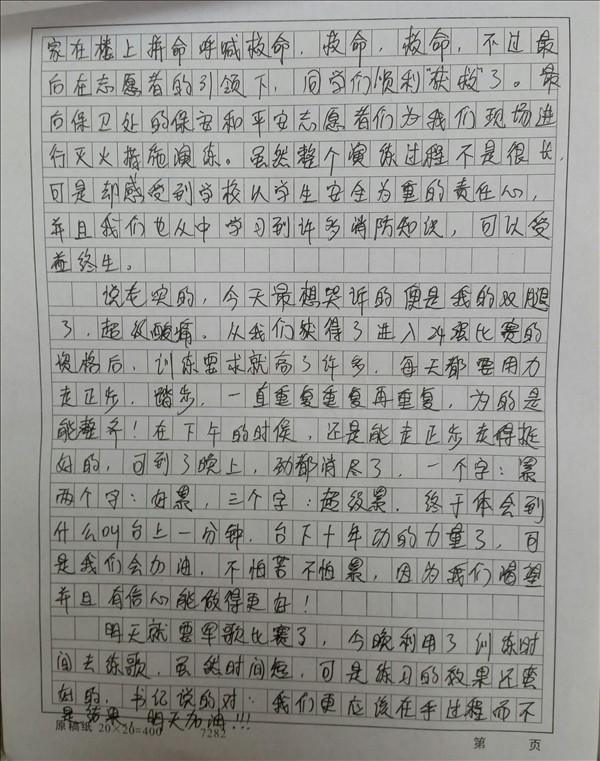 家在楼上拼命呼喊救命，救命，救命，不过最
后在志愿者的引领下，同学们顺利“获救”了。最
后保卫处的保安和平安志愿者们为我们现场进
行灭火措施演练。虽然整个演练过程不是很长，
可是却感受到学校以学生安全为重的责任心，
并且我们也从中学习到许多消防知识，可以受
益终生。
说老实的，今天最想哭诉的便是我的双腿
了，超级酸痛。从我们获得了进入24强比赛的
资格后，训练要求就高了许多，每天都要用力
走正步，踏步，一直重复重复再重复，为的是
能整齐！在下午的时候，还是能走正步走得挺
好的，可到了晚上，劲都消尽了，一个字：累
两个字：好累，三个字：超级累。终于体会到
什么叫台上一分钟，台下十年功的力量了，可
是我们会加油，不怕苦不怕累，因为我们渴望
并且有信心能做得更好！
明天就要军歌比赛了，今晚利用了训练时
间去练歌，虽然时间短，可是练习的效果还蛮
好的，书记说的对：我们更应该在乎过程而不
是结果，明天加油!!!
原稿纸 20×20=400 7282
第 页